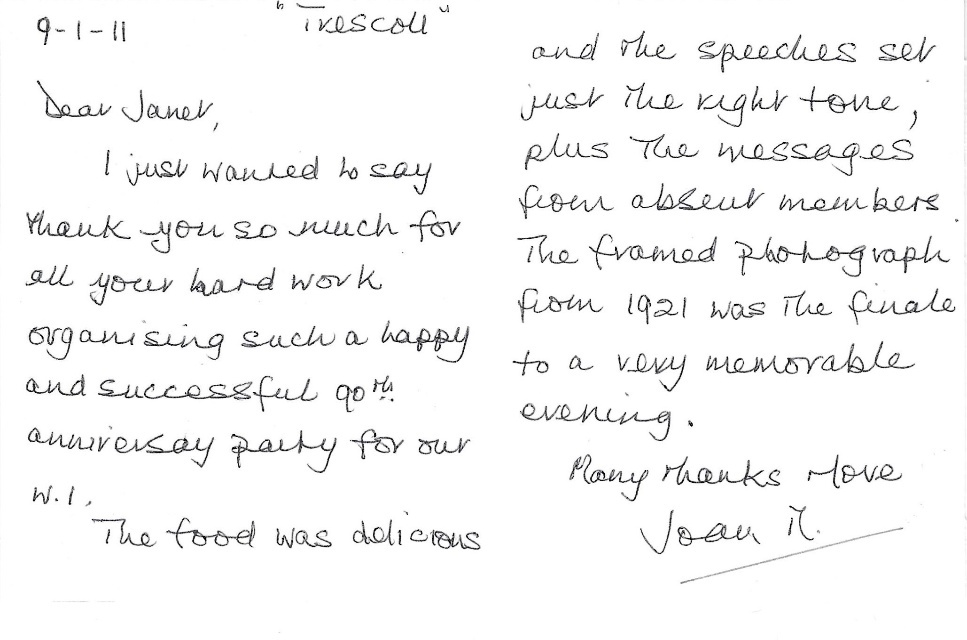 9-1-11
"Trescoll"
Dear Janet,
I just wanted to say
thank you so much for
all your hard work
organising such a happy
and successful 90th
anniversay party for our
W.I.
The food was delicious
and the speeches set
just the right tone,
plus the messages
from absent members.
The framed photograph
from 1921 was the finale
to a very memorable
evening.
Many thanks + love
Joan M.